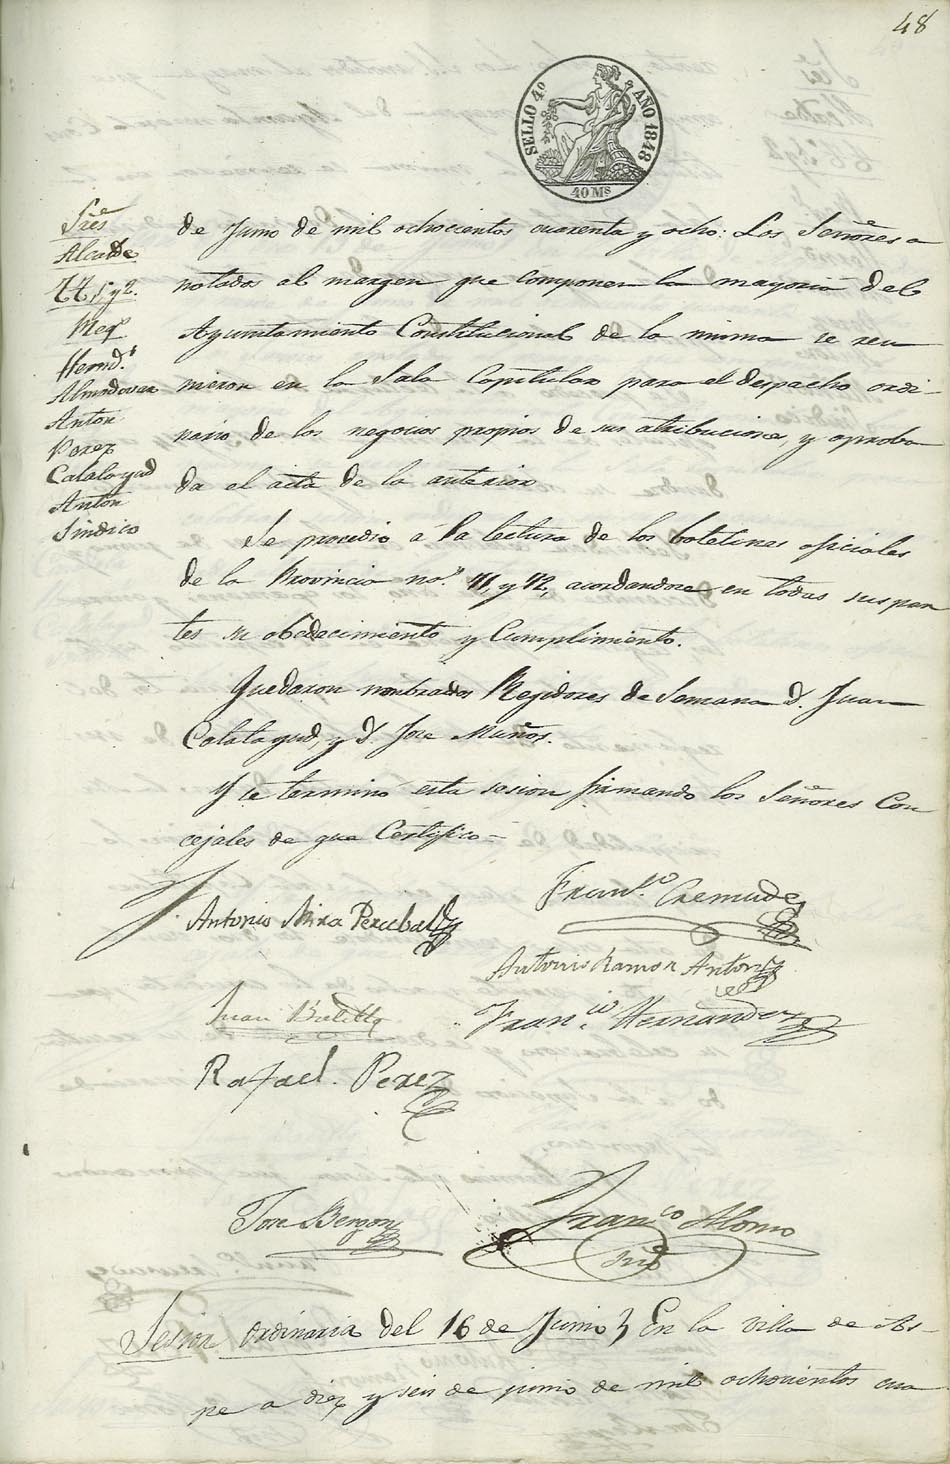 48
SELLO 4º AÑO 1848
40 Ms
Sres
Alcalde
tt 1º y 2º
Meqº
Hernds
Almodovar
Anton
Perez
Calatayud
Anton
Sindico
de Junio de mil ochocientos cuarenta y ocho: Los Señores a
notados al margen que componen la mayoria del
Ayuntamiento Constitucional de la misma se reu
nieron en la Sala Capitular para el despacho ordi-
nario de los negocios propios de sus atribuciones, y aproba
da el acta de la anterior
Se procedio á la lectura de los boletines oficiales
de la Provincia nos. 71, y 72, acordandose en todas sus par
tes su obedecimiento y Cumplimiento.
Quedaron nombrados Regidores de Semana D. Juan
Calatayud, y D. Jose Muños.
Y se terminó esta sesion firmando los Señores Con
cejales de que Certifico=
Antonio Mira Percebal
Franco Cremades
Antonio Ramon Anton
Juan Botella
Franco Hernandez
Rafael Perez
Jose
Franco Alonso
Srio
Sesion ordinaria del 16 de Junio } En la villa de As-
pe a diez y seis de junio de mil ochocientos cua